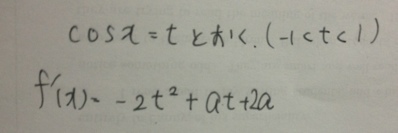 cosx=tとおく.(-1<t<1)
f'(x)=-2t²+at+2a